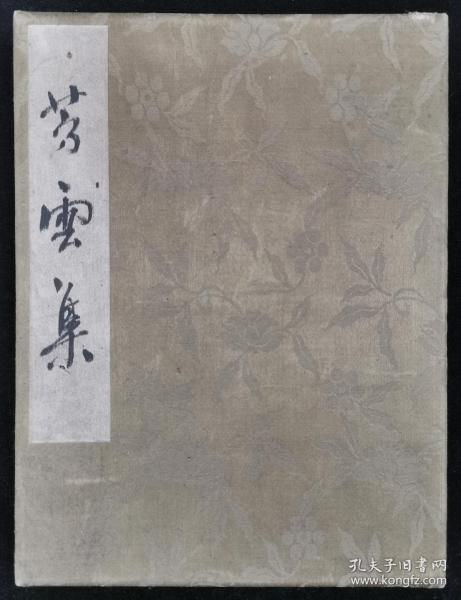 芳雲集
孔夫子旧书网
www.kongfz.com